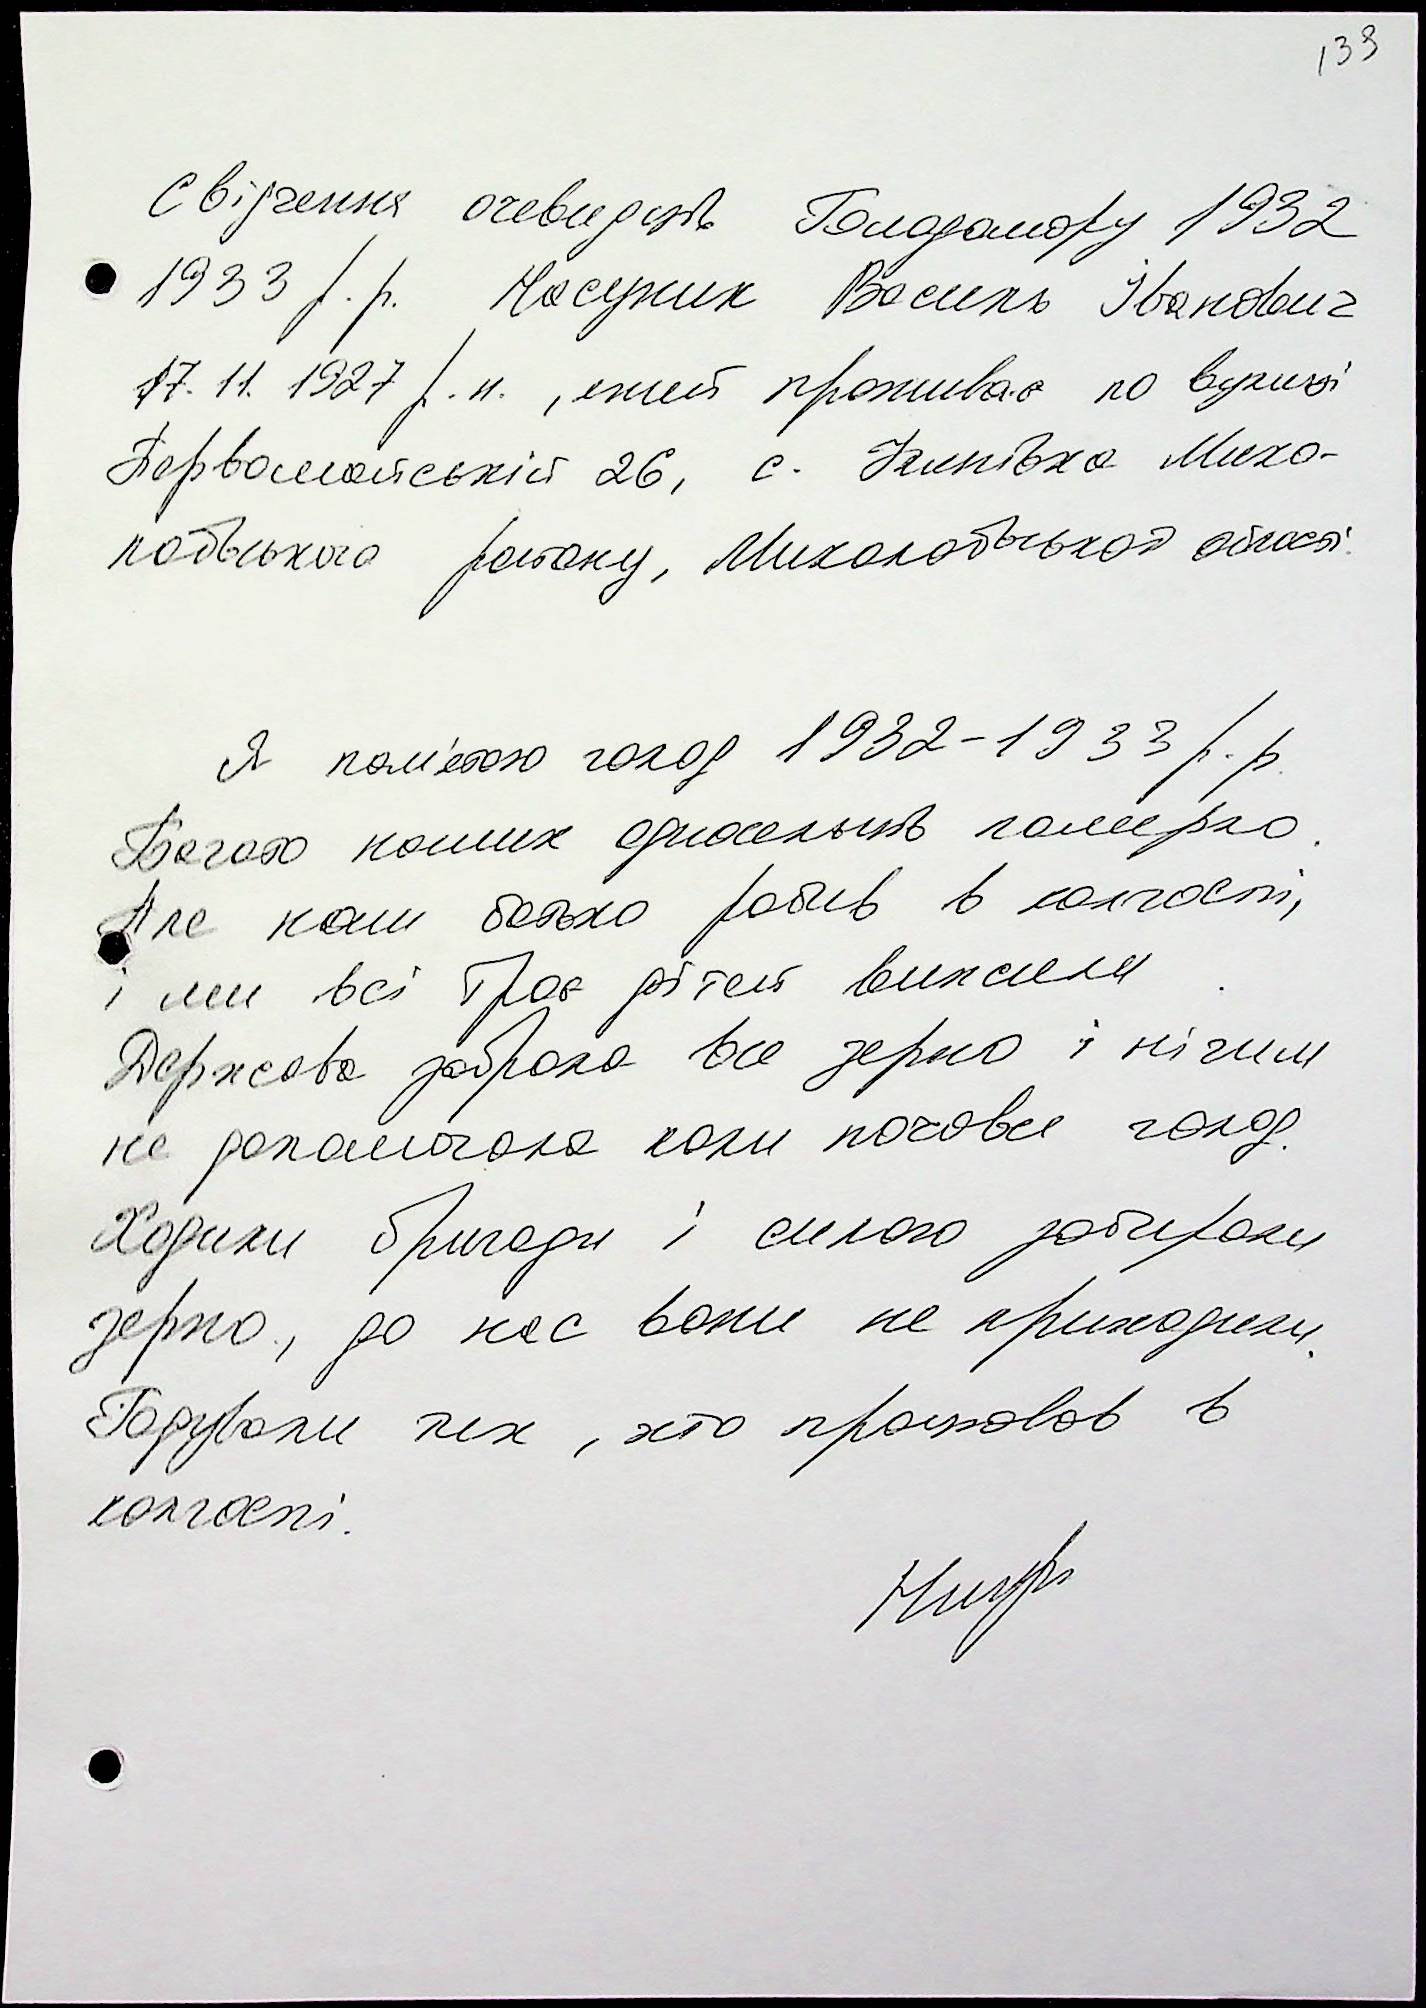 133
Свідчення очевидців Голодомору 1932
1933 р.р. Василь Іванович
17.11.1927 р.н., який проживає по вулиці
Первомайській 26, с. Улянівка Мико-
лаївського району, Миколаївської області.
Я пам'ятаю голод 1932-1933 р.р.
Багато наших односельців померло.
Але наш батько робив в колгоспі,
і ми всі троє дітей вижили.
Держава забрала все зерно і нічим
не допомогала коли почався голод.
Ходили бригади і силою забирали
зерно, до нас вони не приходили.
Годували тих, хто працював в
колгоспі.